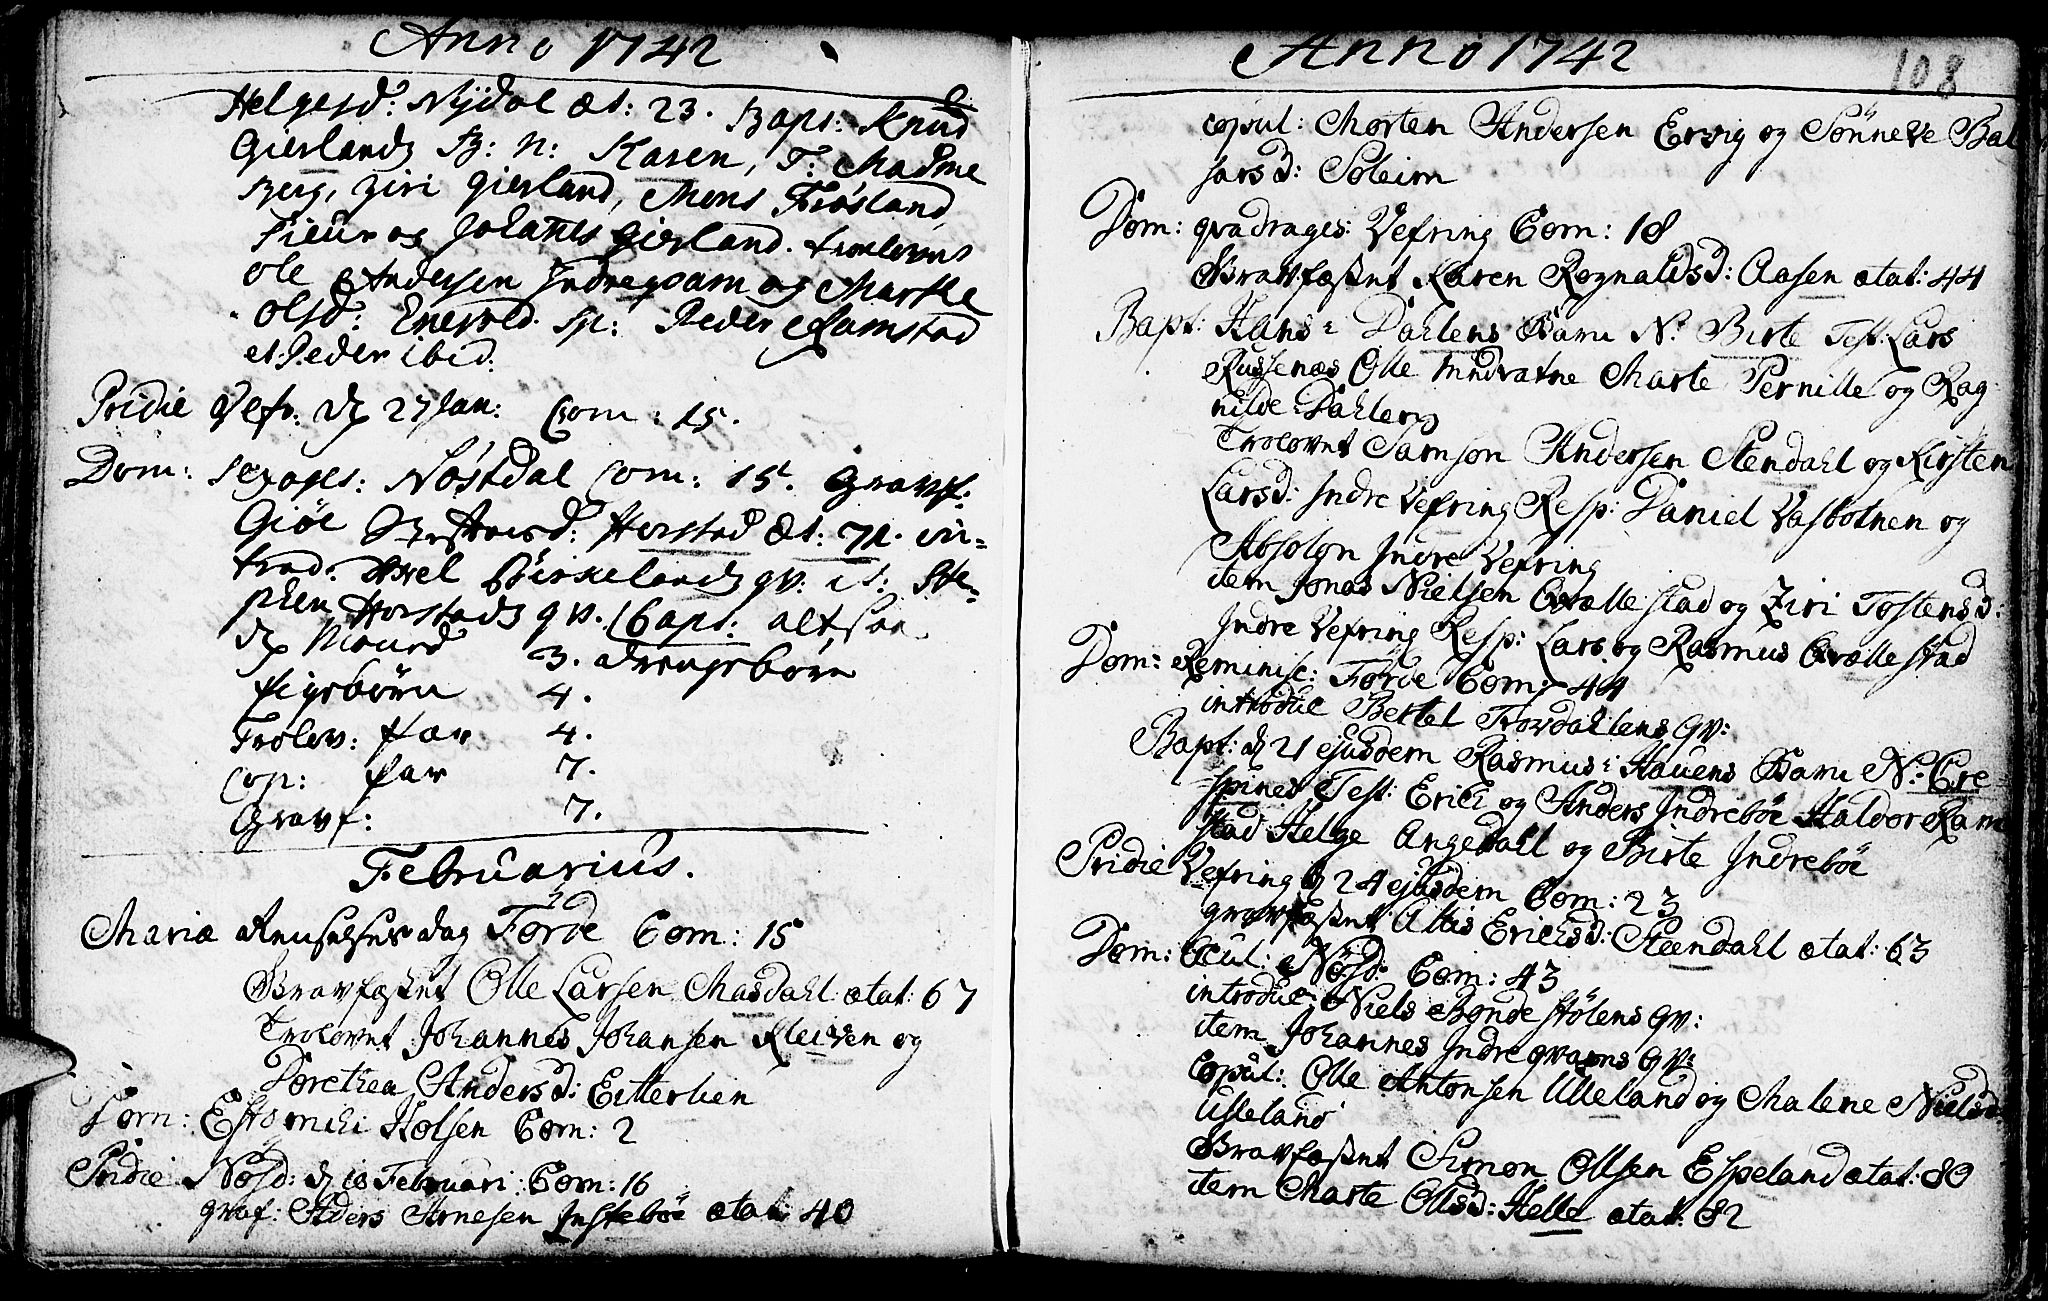 Anno 1742
Helgesd: Nydal æt: 23. Bapt: Knud
Gierlands B: N: Karen, T: Madme
Berg, Ziri Gierland, Mons Frøsland
Sieur og Johanes Gierland. Trolovus
Ole Andersen Indreqvam og Marthe
Olsd: Enevold. Sp: Peder Ramstad
et Peder ibid:
Pridie Vefr. dn 27 Jan: Com: 15.
Dom: sexages: Nøstdal Com: 15. Gravf:
Giøe Hersted æt: 71. in=
trod: Axel Birkelands qv: it: Ste=
phen Horstads qv. Bapt: altsaa
dn Maaned 3. drengebørn
Pigebørn 4.
Trolov: Par 4.
Cop: Par 7.
Gravf: 7.
Februarius.
Mariæ Renselses dag Førde Com: 15
Gravfæstet Olle Larsen Masdahl ætat: 67
Trolovet Johannes Johansen Kleiven og
Dorethea Andersd: Eitterlien
Dom: Estomihi Holsen Com: 2
Pridie Nøsd: d 10 Februari: Com: 16
graf: Aders Arnesen Instebøe ætat: 40
Anno 1742
108
copul: Morten Andersen Ervig og Sønneve Bal
sarsd: Soleim
Dom: qvadrages: Vefring Com: 18
Gravfæstet Karen Rognaldsd: Aasen ætat: 44
Bapt: Hans Dahlens Barn N: Birte Test: Lars
Russenæs Olle Indvatne Marte Pernille og Rag
nilde Dahlen
Trolovet Samson Andersen Stendahl og Kirsten
Larsd: Indre Vefring Resp: Daniel Vasbotnen og
Absolon Indre Vefring
item Jonas Nielsen Qvællestad og Ziri Tostensd:
Indre Vefring Resp: Lars og Rasmus Qvællestad
Dom: Reminisc: Førde Com: 44
introduc Bertel Trovdahlens qv:
Bapt: d 21 ejusdem Rasmus Hauens Barn N: Cre
spines Test: Erich og Anders Indrebøe Haldor Ram
stad Helge Angedall og Birte Indrebøe
Pridie Vefring d 24 ejusdem Com: 23
gravfæstet Altis Erichsd: Steendahl ætat: 63
Dom: Ocul: Nøsd: Com: 43
introduc Niels Bonde stølens qv:
item Johannes Indreqvams qv:
Copul: Olle Antonsen Ulleland og Malene Nielsd:
Ulleland
Gravfæstet Simon Ollsen Espeland ætat: 80
item Marte Ollsd: Helle ætat: 82